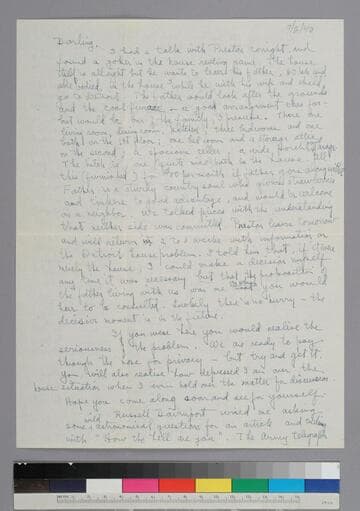 7/5/40
Darling,
I had a talk with Preston tonight and
found a joker in the house renting game. The house
itself is allright but he wants to leave his father, 83 hale and
able bodied in the house while he with his wife and child
go to Detroit. The father would look after the grounds
and the coal furnace - a good arrangement
but would be our the family I presume. There are
living room, dining room, kitchen, three bedrooms and one
bath on the 1st floor; one bed room and a storage attic
on the second; a spacious cellar; a wide porch; garage.
The hotel is quite close to the house. All
this furnished for $ per month if father goes along with it.
Father is a sturdy country soul who grows strawberries
and to some advantage, and would be welcome
as a neighbor. We talked prices with the understanding
that neither side was committed. Preston leaves tomorrow
and will return in 2 to 3 weeks with information on
the Detroit house problem. I told him that if it were
merely the house, I could make a decision myself
any time it was necessary but that the proposition of
the father living with us was one you would
have to be consulted. Luckily there is no hurry - the
decisive moment is in the future.
If you were here you would realize the
seriousness of the problem. We are ready to pay
through the nose for privacy - but try and get it.
You will also realize how depressed I am over the
basic situation when I even hold out the matter for discussion
Hope you come along soon and see for yourself.
Russell Davenport wired me asking
some astronomical question for an article and
with "How the hell are you". The Army telegraph